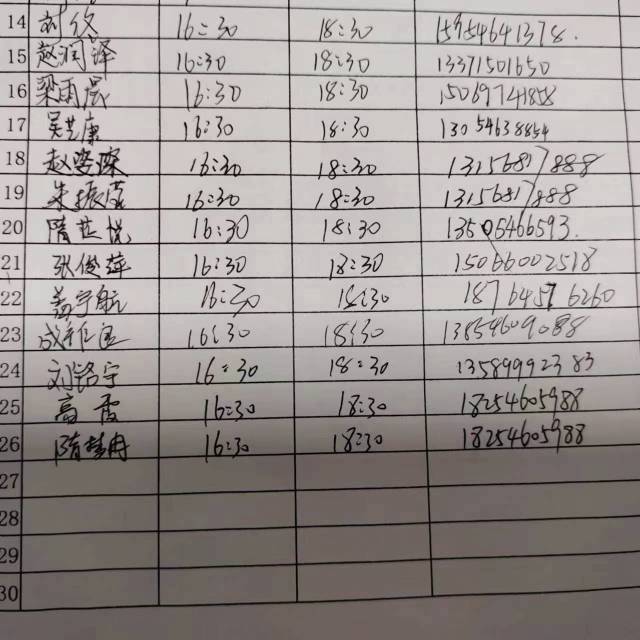 14 刘欣 16:30 18:30 15954641378.
15 赵润泽 16:30 18:30 13371501650
16 梁雨晨 16:30 18:30 15069741858
17 吴艺康 16:30 18:30 13054638854
18 赵 16:30 18:30 13156817888
19 朱振 16:30 18:30 13156817888
20 隋芷悦 16:30 18:30 13505466593.
21 张俊萍 16:30 18:30 15066002518
22 盖宇航 16:30 18:30 18764576260
23 16:30 18:30 13854609088
24 刘铭宇 16:30 18:30 13589992383
25 高霞 16:30 18:30 18254605988
26 隋梦冉 16:30 18:30 18254605988
27
28
29
30